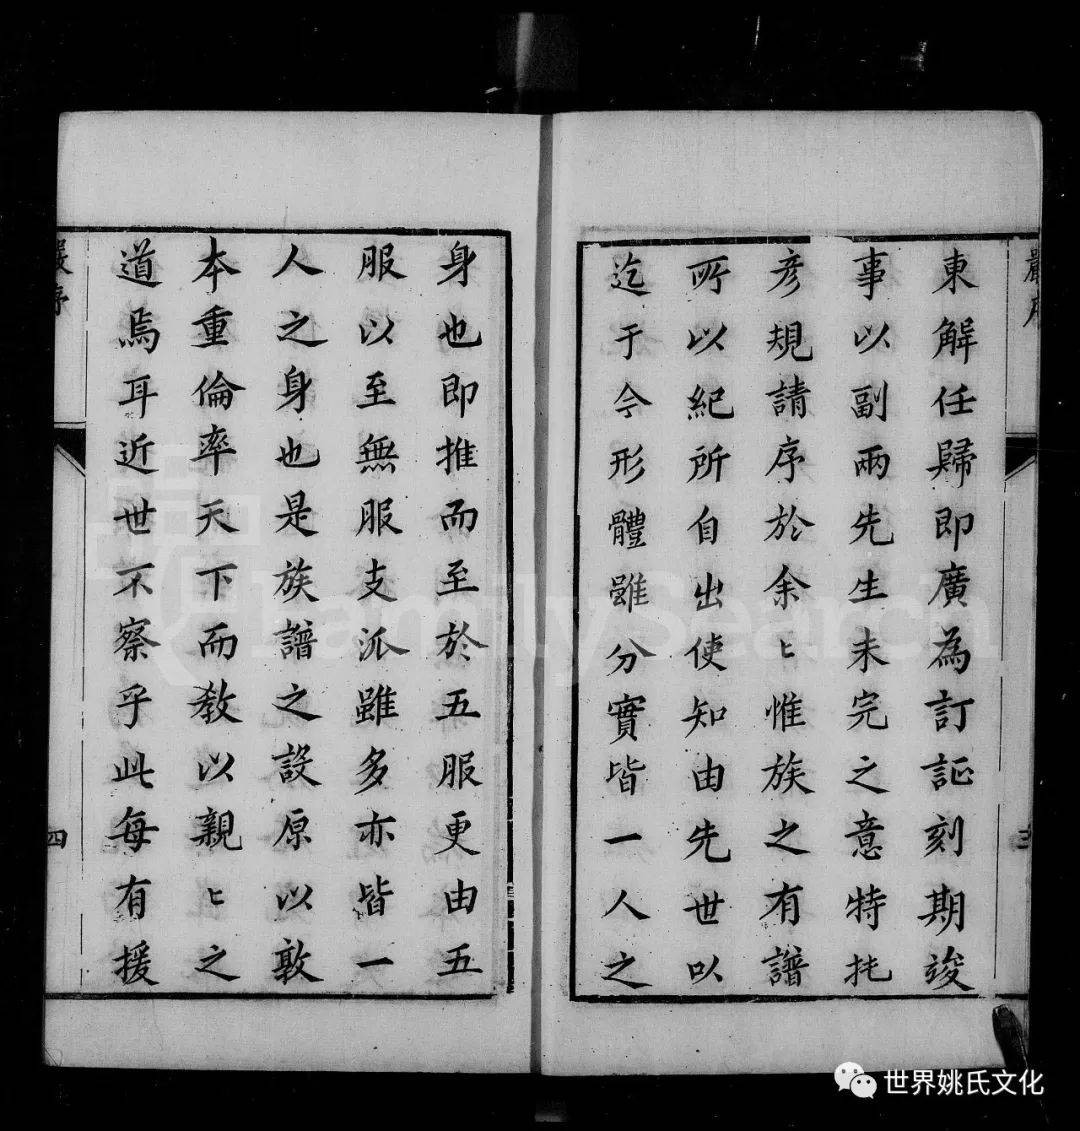 嚴序
東解任歸即廣為訂証刻期竣
事以副兩先生未完之意特扥
彥規請序於余〻惟族之有譜
所以紀所自出使知由先世以
迄于今形體雖分實皆一人之
身也即推而至於五服更由五
服以至無服支派雖多亦皆一
人之身也是族譜之設原以敦
本重倫率天下而教以親〻之
道焉耳近世不察乎此每有援
嚴序
四
FamilySearch
世界姚氏文化